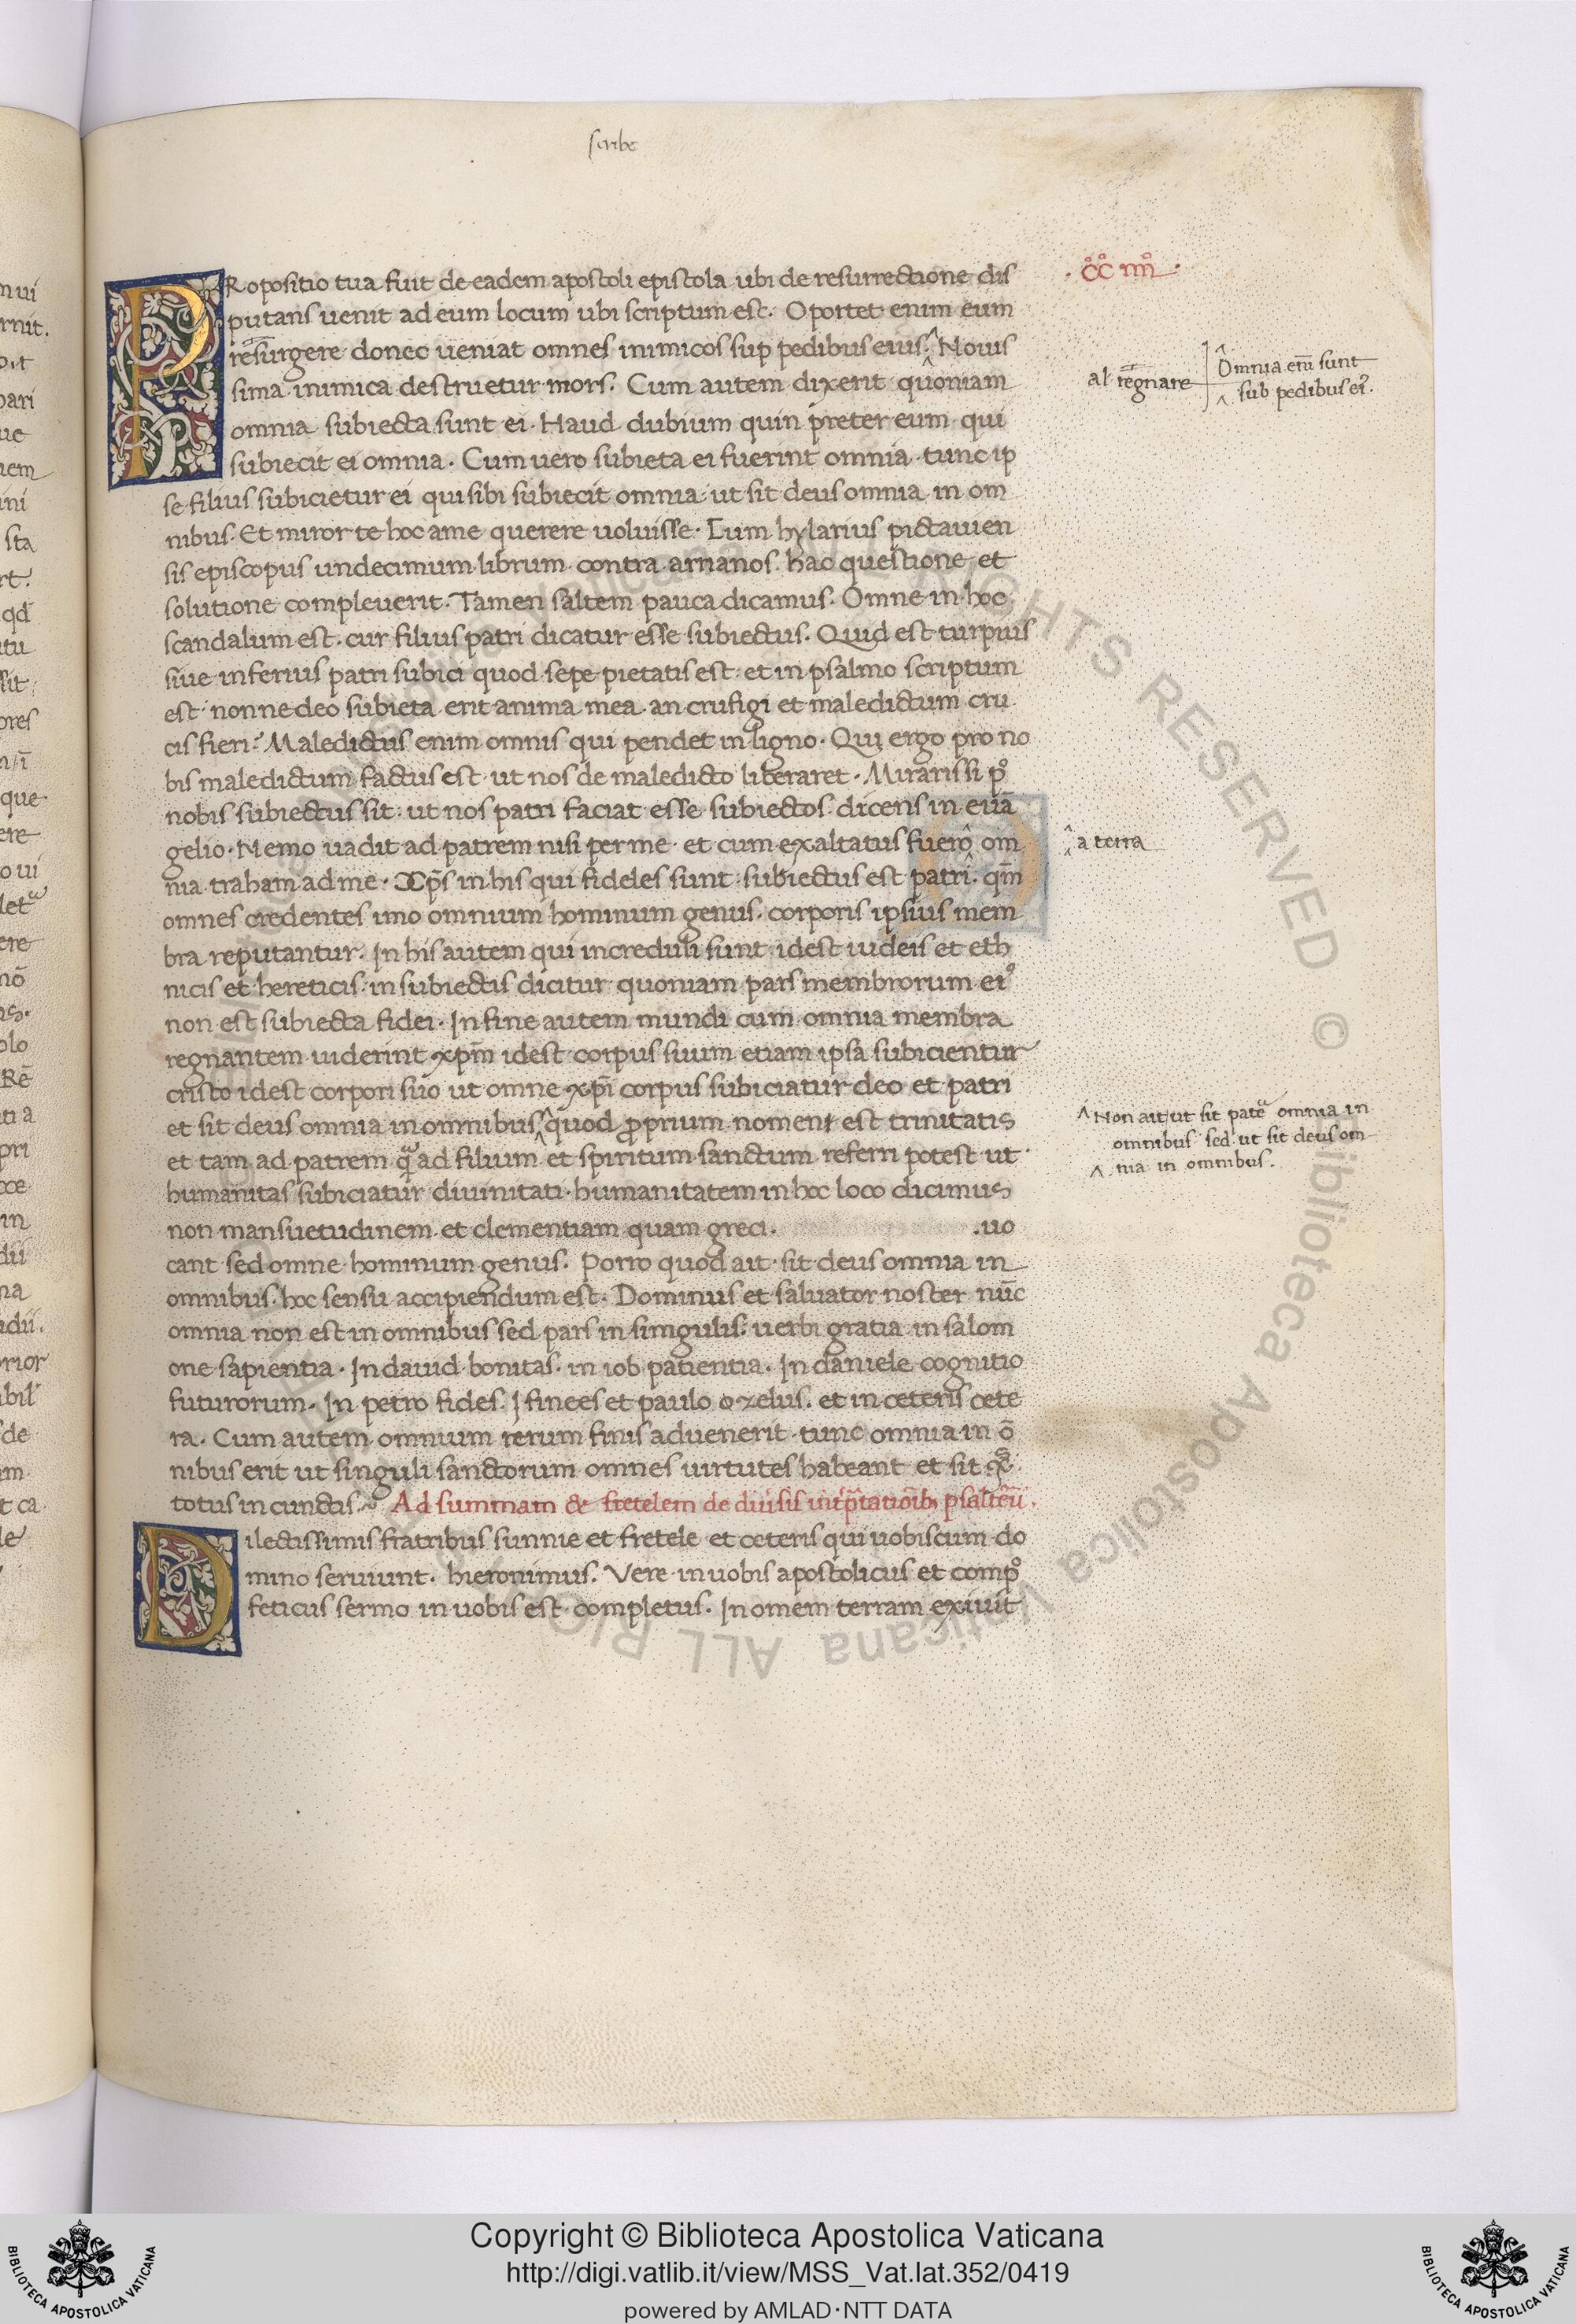 scribe
PRopositio tua fuit de eadem apostoli epistola ubi de resurrectione dis
· cc̊ iiii̊ ·
putans uenit ad eum locum ubi scriptum est. Oportet enim eum
resurgere donec ueniat omnes inimicos sup pedibus eius. Nouis
al regnare
Omnia eni̅ sunt
sub pedibus ei9.
sima inimica destruetur mors. Cum autem dixerit quoniam
omnia subiecta sunt ei. Haud dubium quin preter eum qui
subiecit ei omnia. Cum uero subieta ei fuerint omnia tunc ip
se filius subicietur ei qui sibi subiecit omnia ut sit deus omnia in om
nibus. Et miror te hoc a me querere uoluisse. Cum hylarius pictauien
sis episcopus undecimum librum contra arrianos hac questione et
solutione compleuerit. Tamen saltem pauca dicamus. Omne in hoc
scandalum est. cur filius patri dicatur esse subiectus. Quid est turpius
siue inferius patri subici quod sepe pietatis est et in psalmo scriptum
est nonne deo subieta erit anima mea an crufigi et maledictum cru
cis fieri? Maledictus enim omnis qui pendet in ligno. Qui ergo pro no
bis maledictum factus est ut nos de maledicto liberaret. Miraris si p9
nobis subiectus sit ut nos patri faciat esse subiectos dicens in eua̅
gelio. Nemo uadit ad patrem nisi per me et cum exaltatus fuero om̅
a terra
nia traham ad me. Xp̅s in his qui fideles sunt subiectus est patri. qm̅
omnes credentes imo omnium hominum genus. corporis ipsius mem
bra reputantur. In his autem qui increduli sunt idest iudeis et eth
nicis et hereticis in subiectis dicitur quoniam pars membrorum ei9
non est subiecta fidei. In fine autem mundi cum omnia membra
regnantem uiderint xpm̅ idest corpus suum etiam ipsa subicientur
cristo idest corpori suo ut omne xpi̅ corpus subiciatur deo et patri
et sit deus omnia in omnibus quod proprium nomen est trinitatis
Non ait ut sit pater omnia in
omnibus sed ut sit deus om
nia in omnibus.
et tam ad patrem qua̅ ad filium et spiritum sanctum referri potest ut
humanitas subiciatur diuinitati. humanitatem in hoc loco dicimus
non mansuetudinem et clementiam quam greci. .uo
cant sed omne hominum genus. Porro quod ait sit deus omnia in
omnibus. hoc sensu accipiendum est. Dominus et saluator noster nu̅c
omnia non est in omnibus sed pars in simgulis. uerbi gratia in salom
one sapientia. In dauid bonitas. in iob patientia. In daniele cognitio
futurorum. In petro fides. I finees et paulo zelus. et in ceteris cete
ra. Cum autem omnium rerum finis aduenerit tunc omnia in o̅
nibus erit ut singuli sanctorum omnes uirtutes habeant et sit
totus in cunctis. Ad summam & fretelem de diuisis int'p̅tatio̅ib; psalteriu̅.
Dilectissimis fratribus sunnie et fretele et ceteris qui uobiscum do
mino seruiunt. hieronimus. Vere in uobis apostolicus et comp9
feticus sermo in uobis est completus. In omem terram exiuit
BIBLIOTECA APOSTOLICA VATICANA
Copyright © Biblioteca Apostolica Vaticana
http://digi.vatlib.it/view/MSS_Vat.lat.352/0419
powered by AMLAD·NTT DATA
BIBLIOTECA APOSTOLICA VATICANA